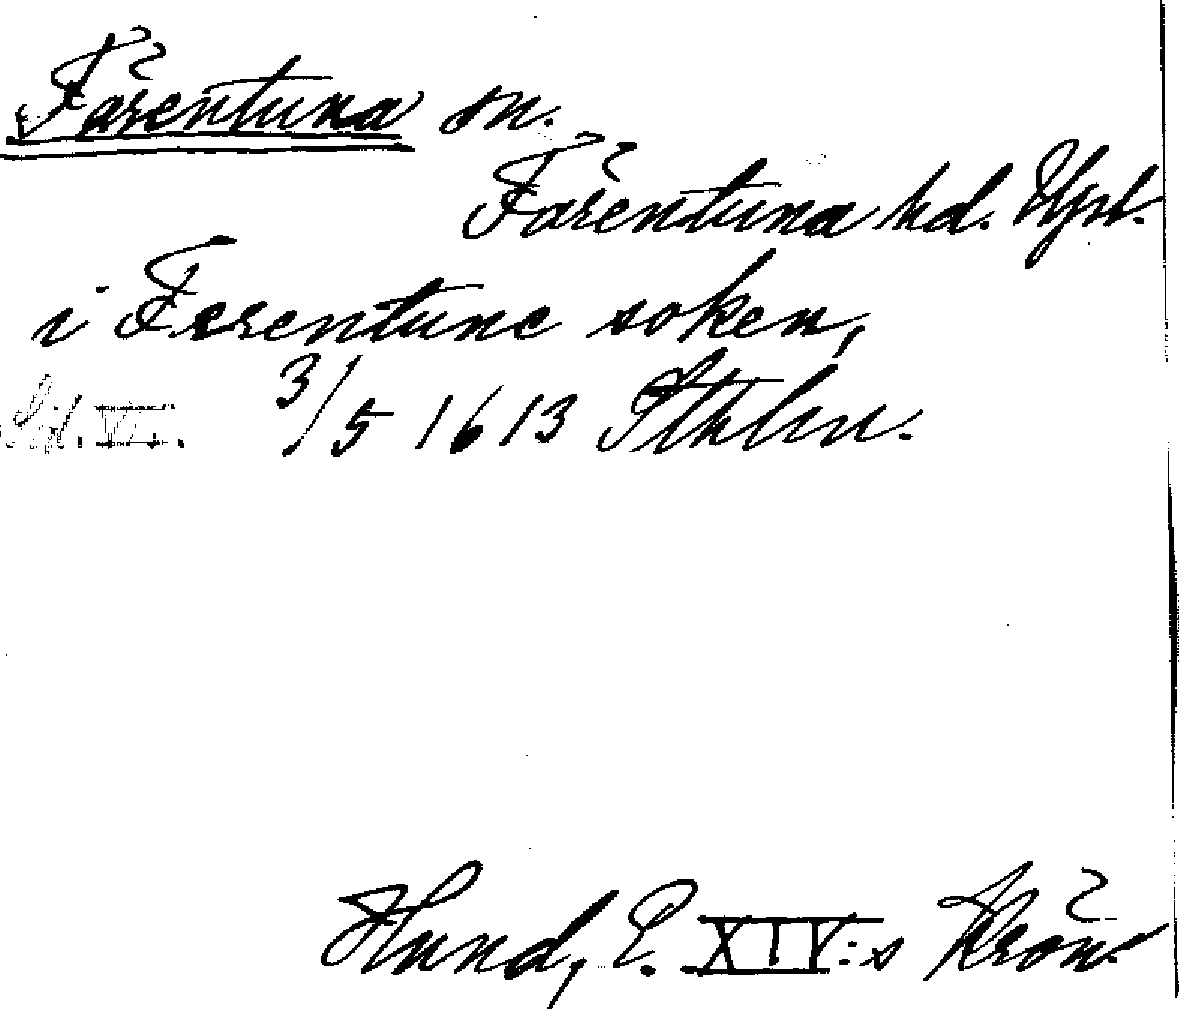 Färentuna sn.
Färentuna hd. Upl.
i Ferentune soken,
3/5 1613 Sthlm.
Hund, E. XIV:s Krön.